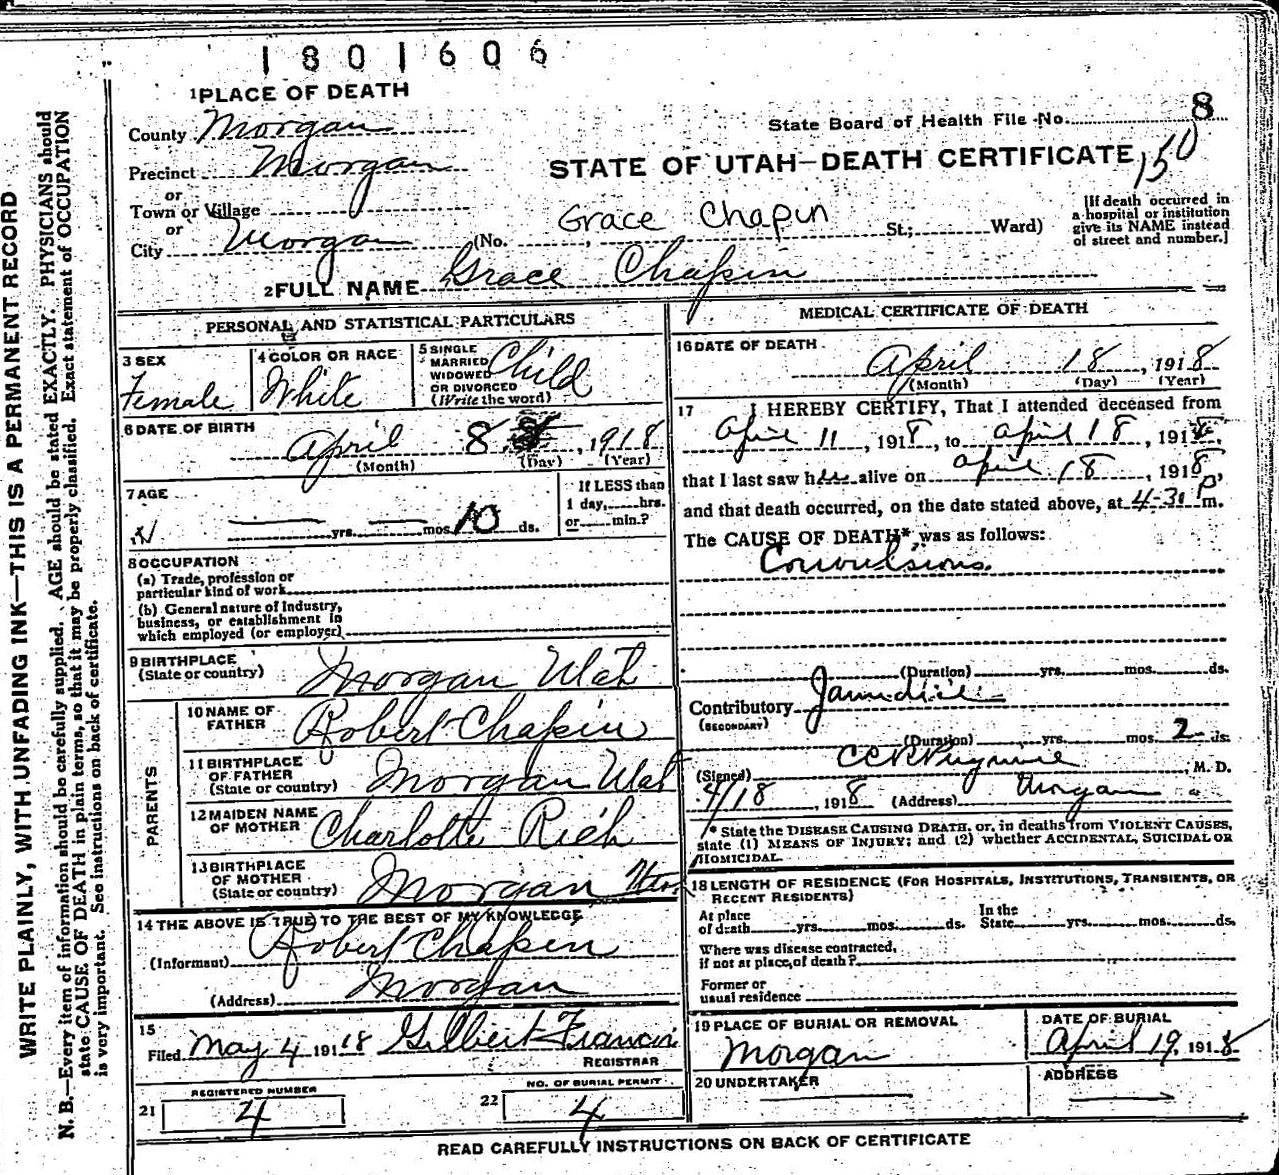 1801606
1 PLACE OF DEATH
County Morgan
State Board of Health File No. 8
Precinct Morgan
STATE OF UTAH—DEATH CERTIFICATE 150
or
Town or Village
or
City Morgan (No. Grace Chapin St.; Ward)
[If death occurred in
a hospital or institution
give its NAME instead
of street and number.]
2 FULL NAME Grace Chapin
PERSONAL AND STATISTICAL PARTICULARS
3 SEX
Female
4 COLOR OR RACE
White
5 SINGLE
MARRIED
WIDOWED
OR DIVORCED
(Write the word)
Child
6 DATE OF BIRTH
April 8, 1918
(Month) (Day) (Year)
7 AGE
yrs. mos. 10 ds.
If LESS than
1 day, hrs.
or min.?
8 OCCUPATION
(a) Trade, profession or
particular kind of work
(b) General nature of Industry,
business, or establishment in
which employed (or employer)
9 BIRTHPLACE
(State or country) Morgan Utah
PARENTS
10 NAME OF
FATHER Robert Chapin
11 BIRTHPLACE
OF FATHER
(State or country) Morgan Utah
12 MAIDEN NAME
OF MOTHER Charlotte Rich
13 BIRTHPLACE
OF MOTHER
(State or country) Morgan
14 THE ABOVE IS TRUE TO THE BEST OF MY KNOWLEDGE
(Informant) Robert Chapin
(Address) Morgan
15
Filed May 4 191 18 Gilbert Francis
REGISTRAR
REGISTERED NUMBER
21 4
NO. OF BURIAL PERMIT
22 4
MEDICAL CERTIFICATE OF DEATH
16 DATE OF DEATH
April 18, 1918
(Month) (Day) (Year)
17 I HEREBY CERTIFY, That I attended deceased from
April 11, 1918, to April 18, 1918,
that I last saw her alive on april 18, 1918,
and that death occurred, on the date stated above, at 4-30 P m.
The CAUSE OF DEATH* was as follows:
Convulsions.
(Duration) yrs. mos. ds.
Contributory Jaundice
(SECONDARY)
(Duration) yrs. mos. 2 ds.
(Signed) , M. D.
4/18, 1918 (Address) Morgan
* State the DISEASE CAUSING DEATH, or, in deaths from VIOLENT CAUSES,
state (1) MEANS OF INJURY; and (2) whether ACCIDENTAL, SUICIDAL OR
HOMICIDAL.
18 LENGTH OF RESIDENCE (FOR HOSPITALS, INSTITUTIONS, TRANSIENTS, OR
RECENT RESIDENTS)
At place
of death yrs. mos. ds.
In the
State yrs. mos. ds.
Where was disease contracted,
if not at place of death?
Former or
usual residence
19 PLACE OF BURIAL OR REMOVAL
Morgan
DATE OF BURIAL
April 19, 1918
20 UNDERTAKER
ADDRESS
READ CAREFULLY INSTRUCTIONS ON BACK OF CERTIFICATE
WRITE PLAINLY, WITH UNFADING INK—THIS IS A PERMANENT RECORD
N. B.—Every item of information should be carefully supplied. AGE should be stated EXACTLY. PHYSICIANS should
state CAUSE OF DEATH in plain terms, so that it may be properly classified. Exact statement of OCCUPATION
is very important. See instructions on back of certificate.